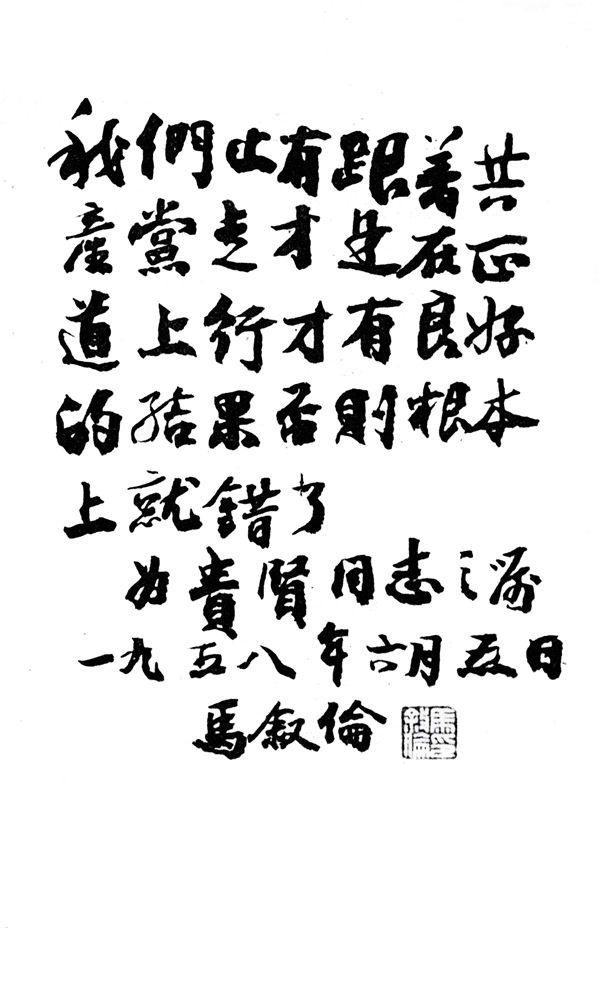 我們止有跟着共
產黨走才是在正
道上行才有良好
的結果否則根本
上就錯了
如貴賢同志之嘱
一九五八年六月五日
馬叙倫
馬印叙倫